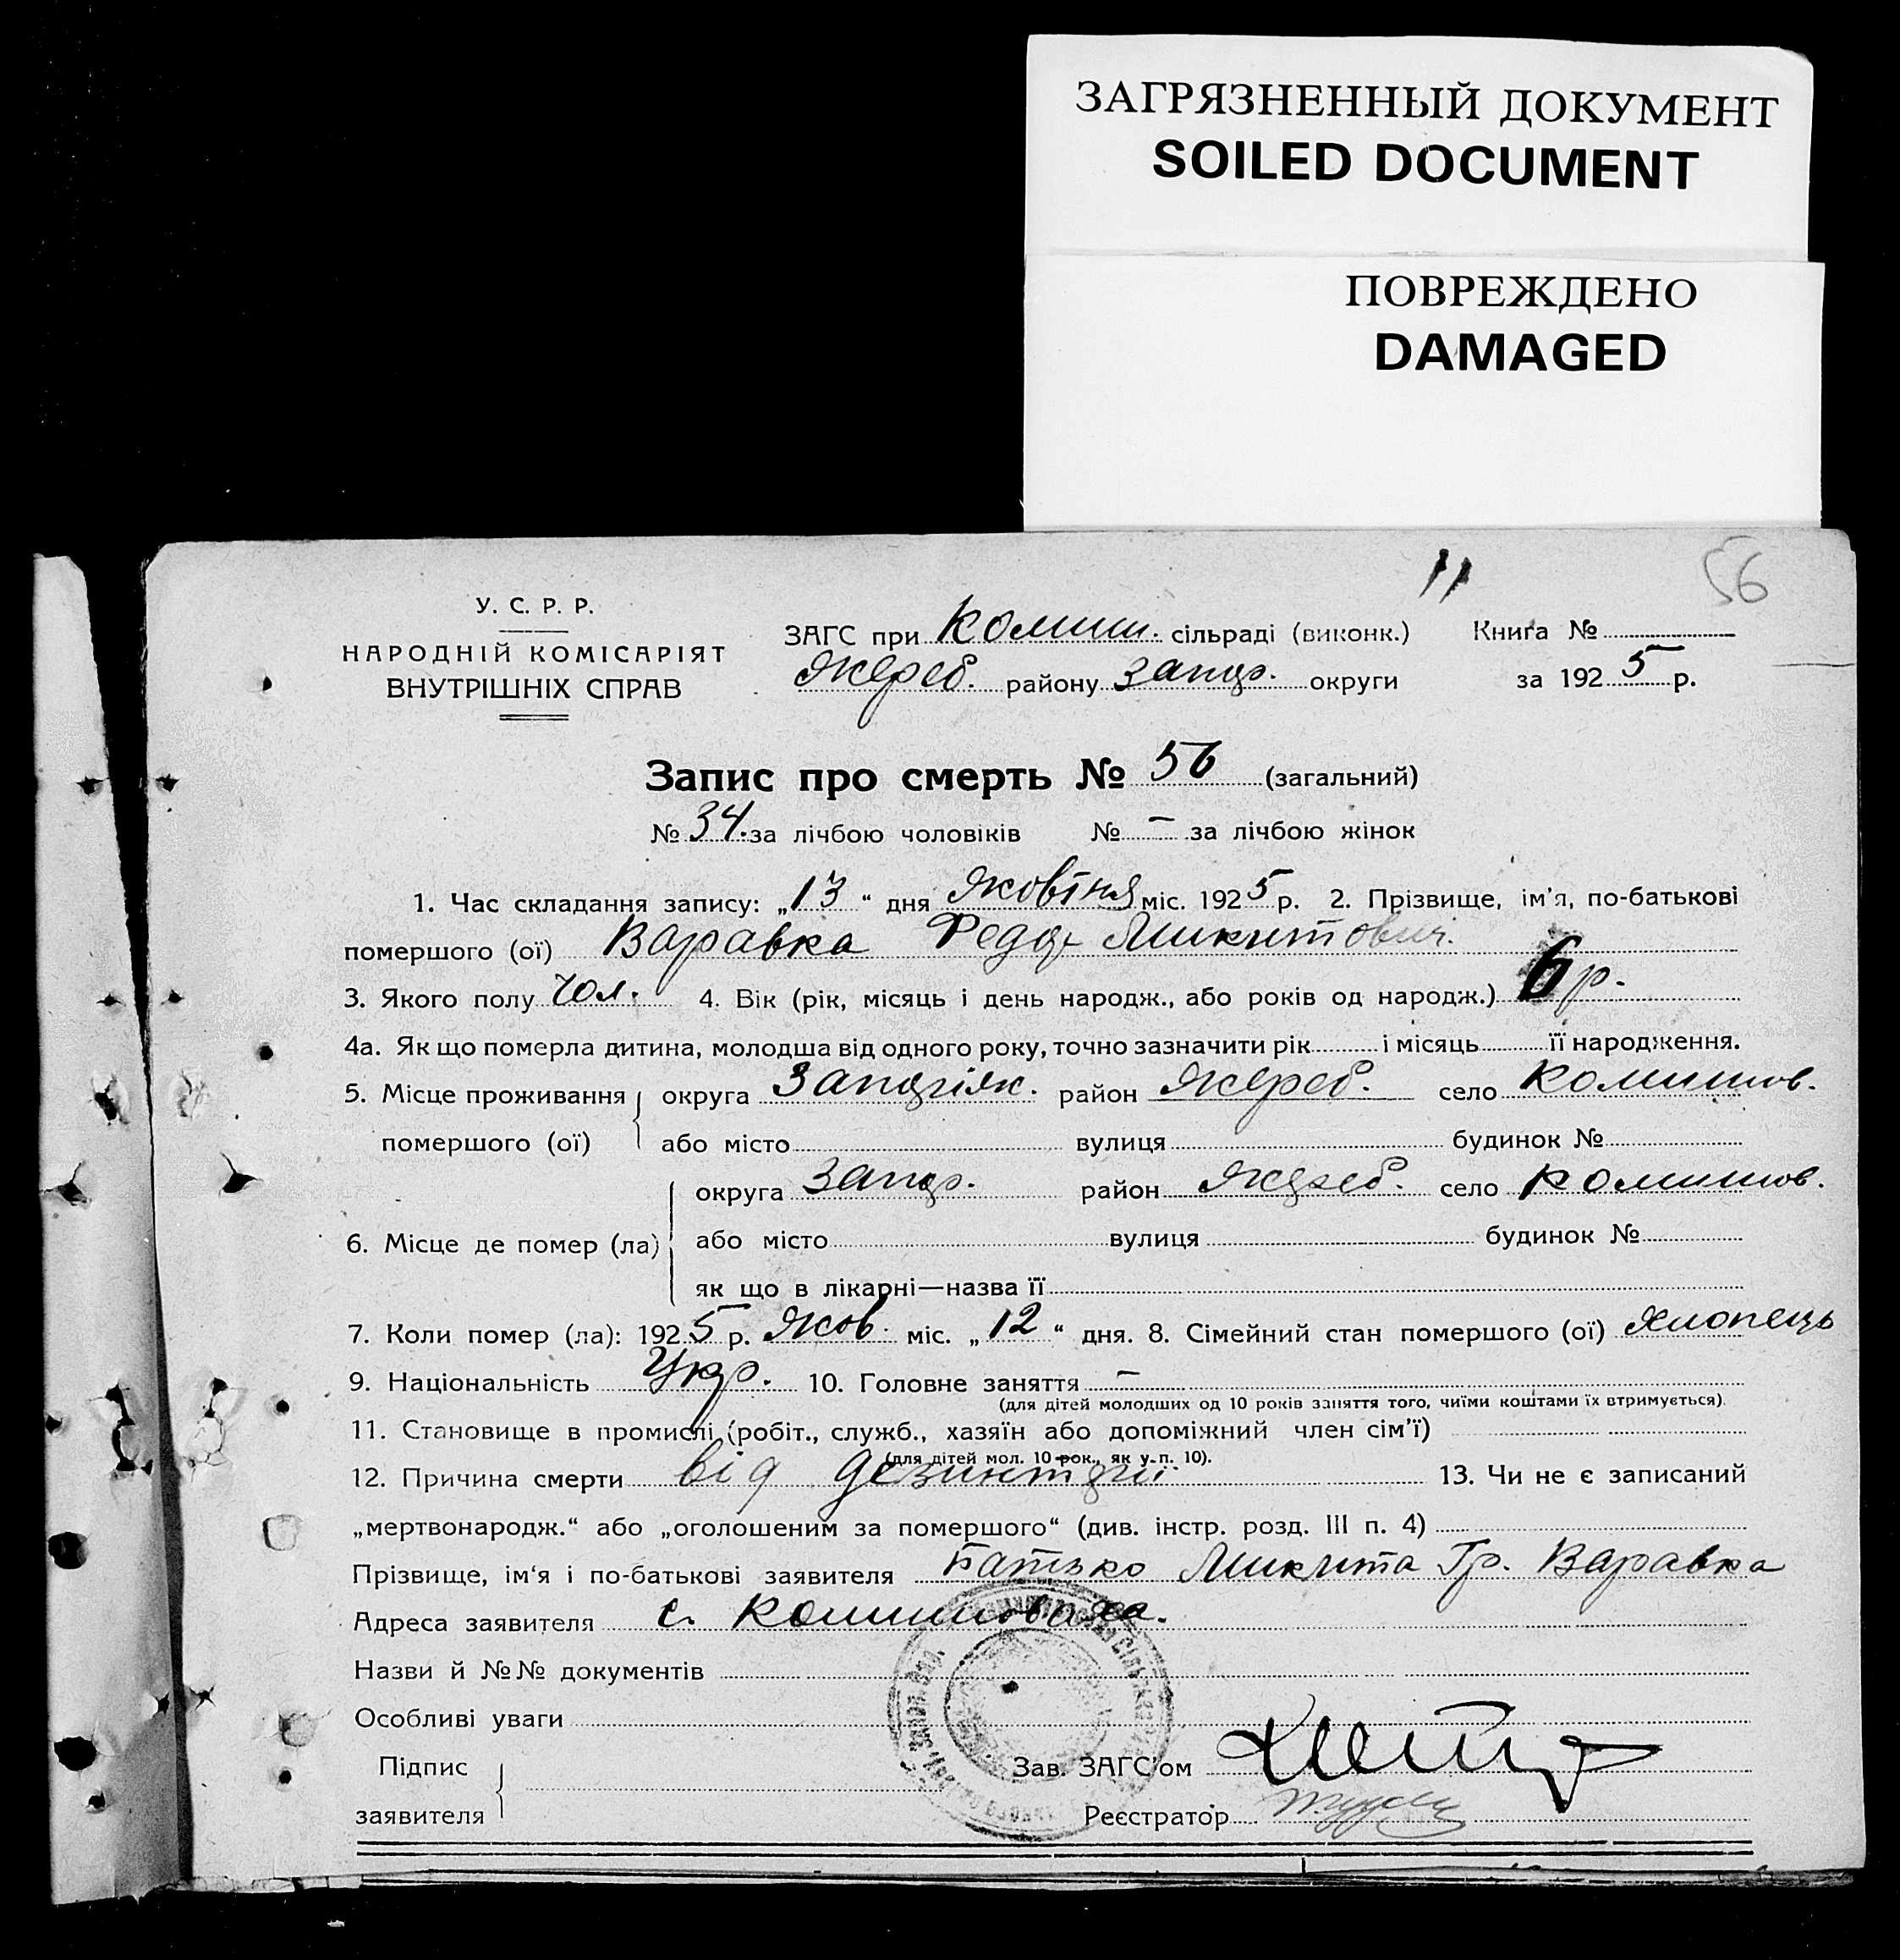 ЗАГРЯЗНЕННЫЙ ДОКУМЕНТ
SOILED DOCUMENT
ПОВРЕЖДЕНО
DAMAGED
11 56
У. С. Р. Р.
НАРОДНІЙ КОМІСАРІЯТ
ВНУТРІШНІХ СПРАВ
ЗАГС при Комиш. сільраді (виконк.) Книга №
Жереб. району Запор. округи за 1925 р.
Запис про смерть № 56 (загальний)
№ 34. за лічбою чоловіків № – за лічбою жінок
1. Час складання запису: „13“ дня Жовтня міс. 1925 р. 2. Прізвище, ім'я, по-батькові
помершого (ої) Варавка Федор Микитович.
3. Якого полу Чол. 4. Вік (рік, місяць і день народж., або років од народж.) 6 р.
4а. Як що померла дитина, молодша від одного року, точно зазначити рік і місяць її народження.
5. Місце проживання округа Запоріж. район Жереб. село Комишов.
помершого (ої) або місто вулиця будинок №
округа Запор. район Жереб. село Комишов.
6. Місце де помер (ла) або місто вулиця будинок №
як що в лікарні—назва її
7. Коли помер (ла): 1925 р. Жов. міс. „12“ дня. 8. Сімейний стан помершого (ої) хлопець
9. Національність Укр. 10. Головне заняття –
(для дітей молодших од 10 років заняття того, чиїми коштами їх втримується).
11. Становище в промислі (робіт., служб., хазяїн або допоміжний член сім'ї)
(для дітей мол. 10 рок., як у п. 10).
12. Причина смерти від дезинтерії 13. Чи не є записаний
„мертвонародж.“ або „оголошеним за помершого“ (див. інстр. розд. III п. 4)
Прізвище, ім'я і по-батькові заявителя Батько Микита Гр. Варавка
Адреса заявителя с. Комишоваха.
Назви й №№ документів
Особливі уваги
Підпис Зав. ЗАГС'ом
заявителя Реєстратор